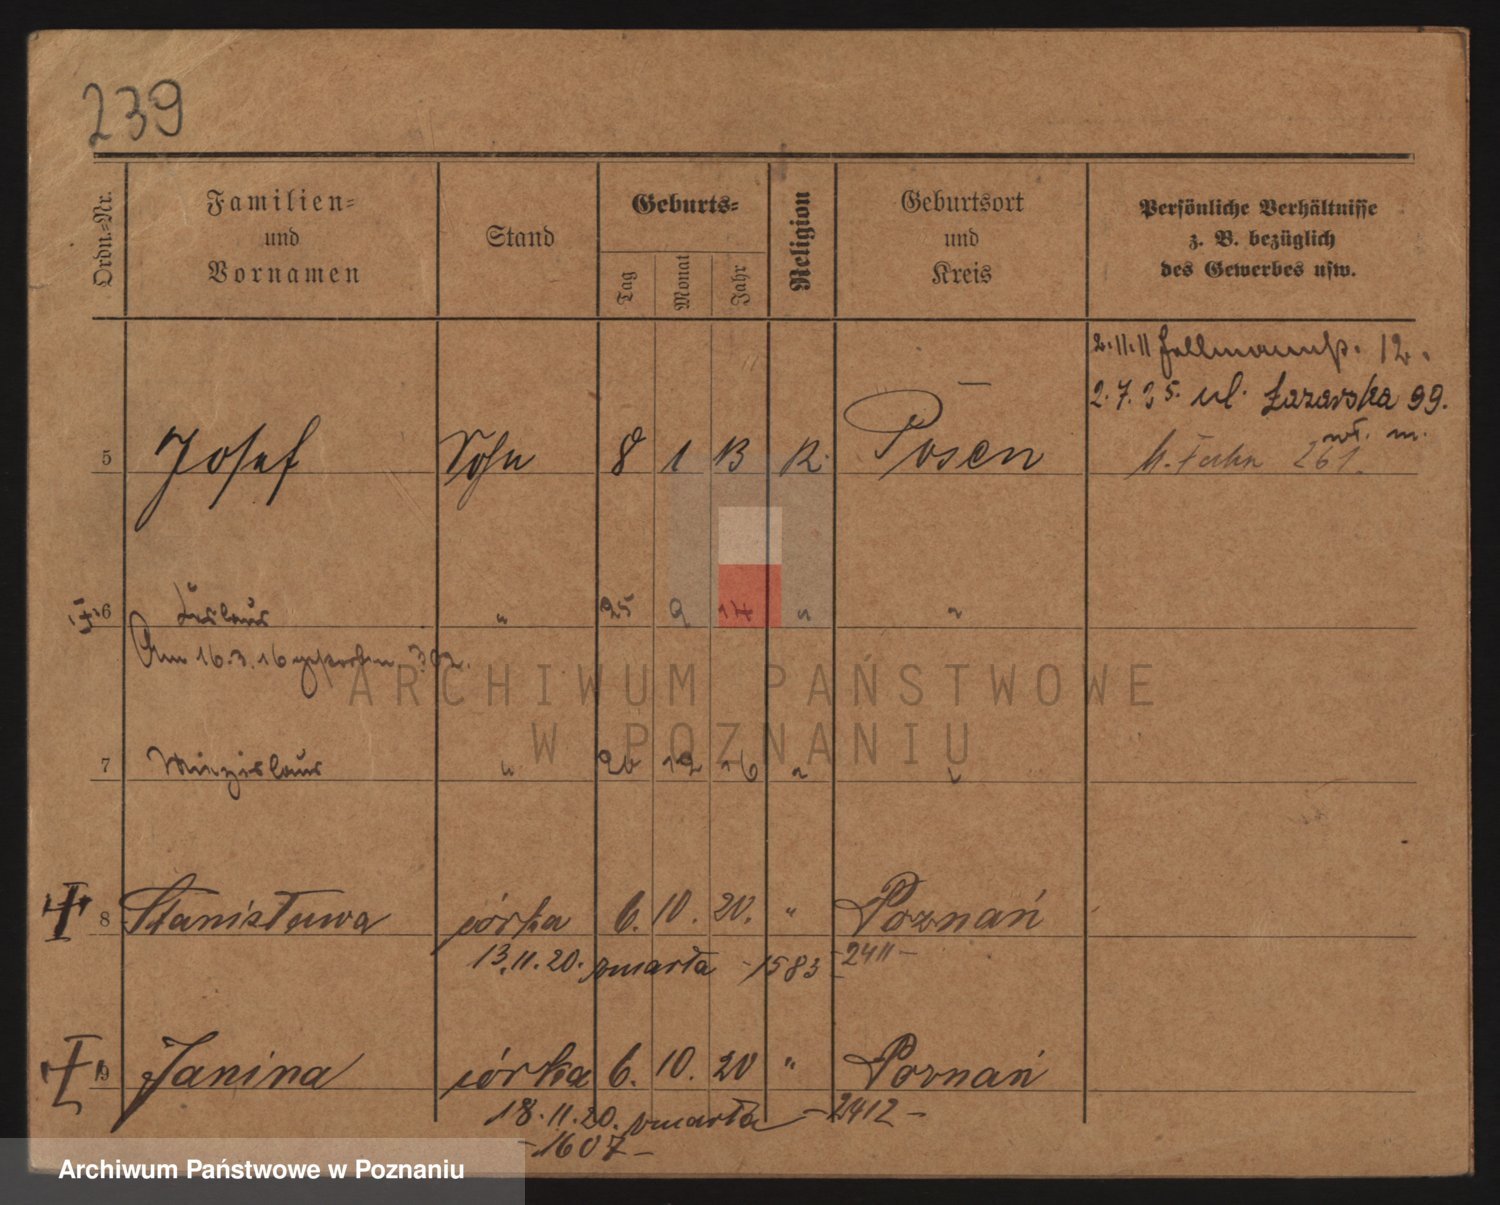 239
Ordn.-Nr.
Familien-
und
Vornamen
Stand
Geburts-
Tag
Monat
Jahr
Religion
Geburtsort
und
Kreis
Persönliche Verhältnisse
z. B. bezüglich
des Gewerbes usw.
2.11.11 12.
2.7.25. ul. Łazarska 99.
wł. m.
5 Josef Sohn 8 1 13 R. Posen 261.
6 " 25 9 14 " "
Am 16.3.16 gestorben 302.
7 Miezislaus " 26 12 16 " "
ARCHIWUM PAŃSTWOWE
W POZNANIU
8 Stanisława córka 6. 10. 20. " Poznań
13.11.20. zmarła -1583 -2411-
9 Janina córka 6. 10. 20 " Poznań
18.11.20. zmarła -2412-
-1607-
Archiwum Państwowe w Poznaniu